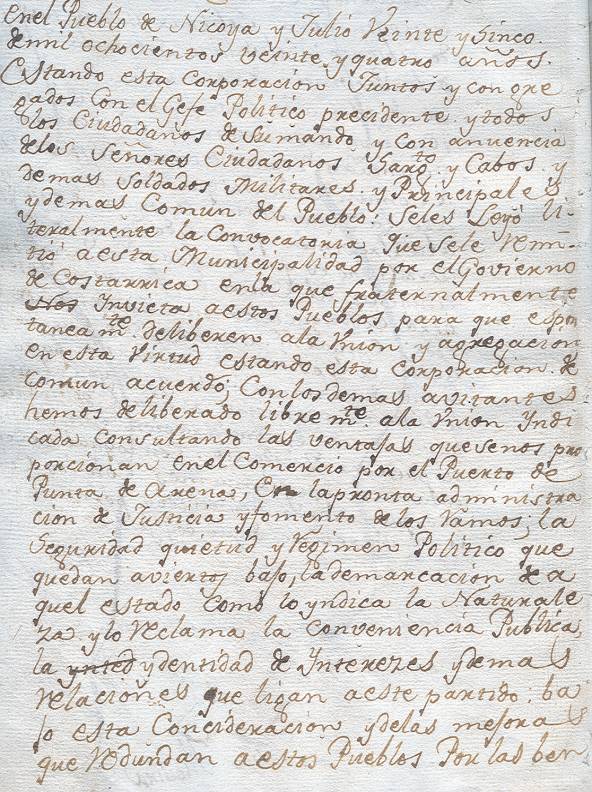 enel Pueblo de Nicoya y Julio Veinte y Sinco.
demil ochocientos veinte y quatro años.
Estando esta corporacion Juntos y con gre
gados Con el Gefe Politico precidente y todos
los Ciudadanos de Sumando y con anuencia
delos Señores Ciudadanos Sargto. y Cabos. y
demas Soldados Militares. y Principales
ydemas Comun del Pueblo. Seles Leyó li-
teralmente la Convocatoria que sele remi-
tió aesta Municipalidad por el Govierno
de Costarrica enla que fraternalmente
Nos Invicta aestos Pueblos para que espon
tanea mte. deliberen ala Vnion y agregacion
en esta Virtud estando esta corporacion. de
comun acuerdo; Conlosdemas avitantes
hemos deliberado libre mte. ala Vnion Yndi
cada Consultando las ventajas quesenos pro
porcionan enel Comercio por el Puerto de
Punta de Arena, En lapronta administra
cion de Justicia yfomento delos Ramos; la
Seguridad quietud y Regimen Politico que
quedan aviertos bajo, la demarcacion de a
quel estado Como lo yndica la Naturale
za y lo reclama la conveniencia Publica,
la ynted ydentidad de Interezes ydemas
relaciones que ligan aeste partido: ba
jo esta Concideracion ydelas mejoras
que redundan aestos Pueblos Por las ben